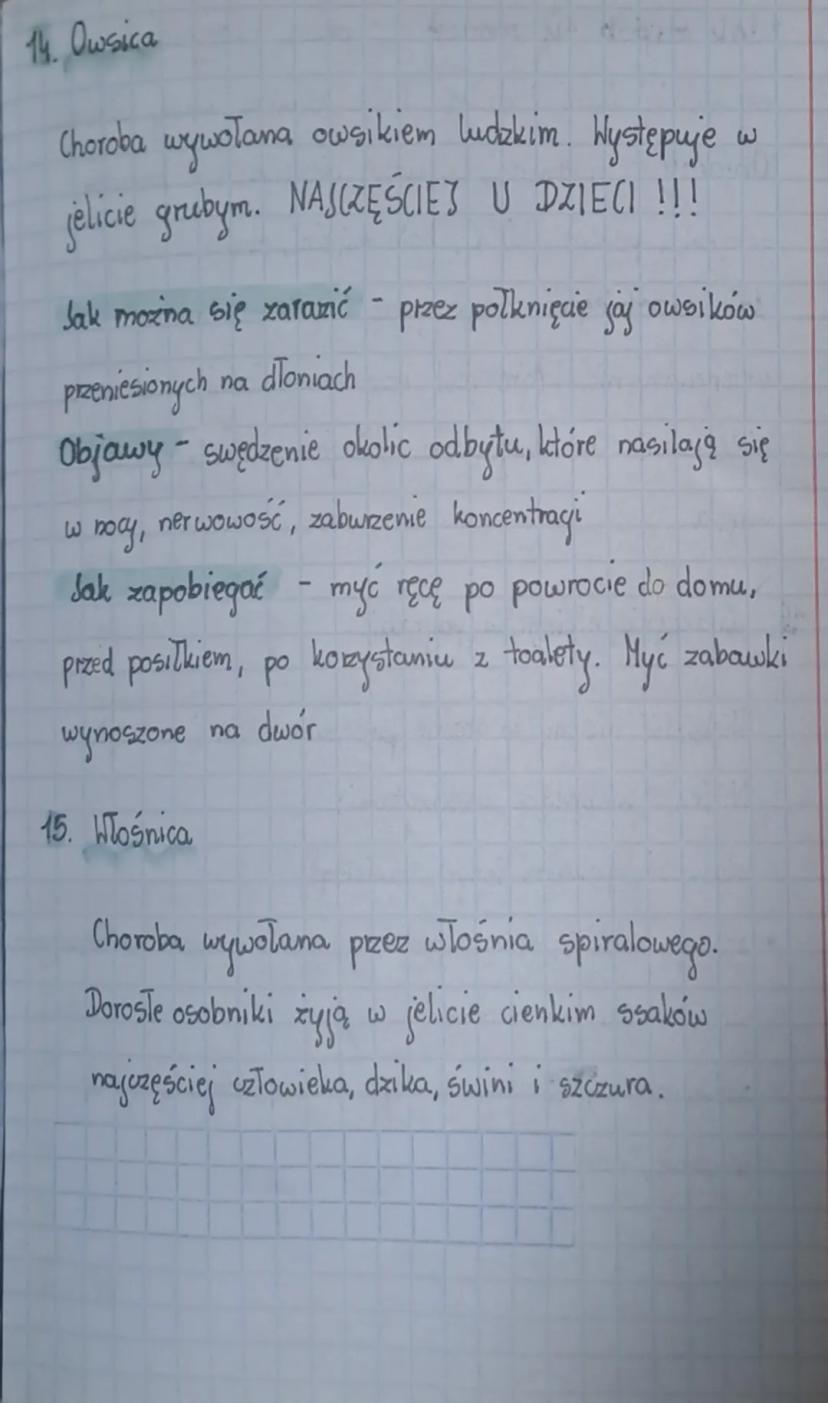 14. Owsica
Choroba wywołana owsikiem ludzkim. Występuje w
jelicie grubym. NAJCZĘŚCIEJ U DZIECI !!!
Jak można się zarazić - przez połknięcie jaj owsików
przeniesionych na dłoniach
Objawy - swędzenie okolic odbytu, które nasilają się
w nocy, nerwowość, zaburzenie koncentracji
Jak zapobiegać - myć ręcę po powrocie do domu,
przed posiłkiem, po korzystaniu z toalety. Myć zabawki
wynoszone na dwór
15. Włośnica
Choroba wywołana przez włośnia spiralowego.
Dorosłe osobniki żyją w jelicie cienkim ssaków
najczęściej człowieka, dzika, świni i szczura.